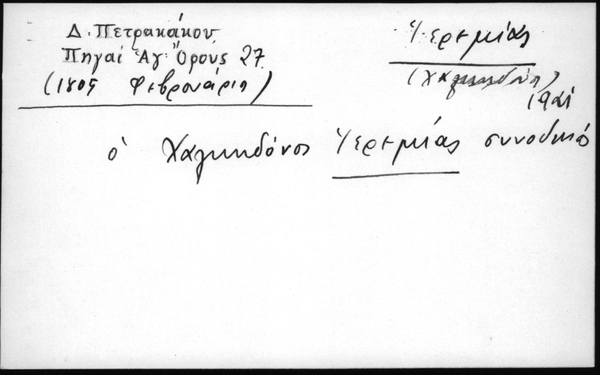 Δ. Πετρακάκου.
Πηγαί Ἁγ. Ὄρους 27
(1805 Φεβρουάριος)
Ἱερεμίας
(Χαλκηδόνος)
ὁ Χαλκηδόνος Ἱερεμίας συνοδικός